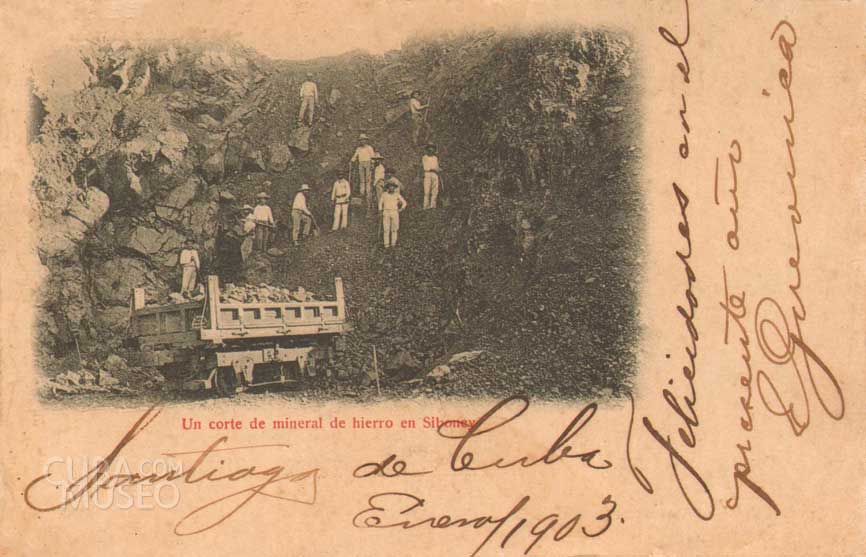 Un corte de mineral de hierro en Siboney
Santiago de Cuba
Enero/1903.
Felicidades en el
presente año
CUBA.COM
MUSEO